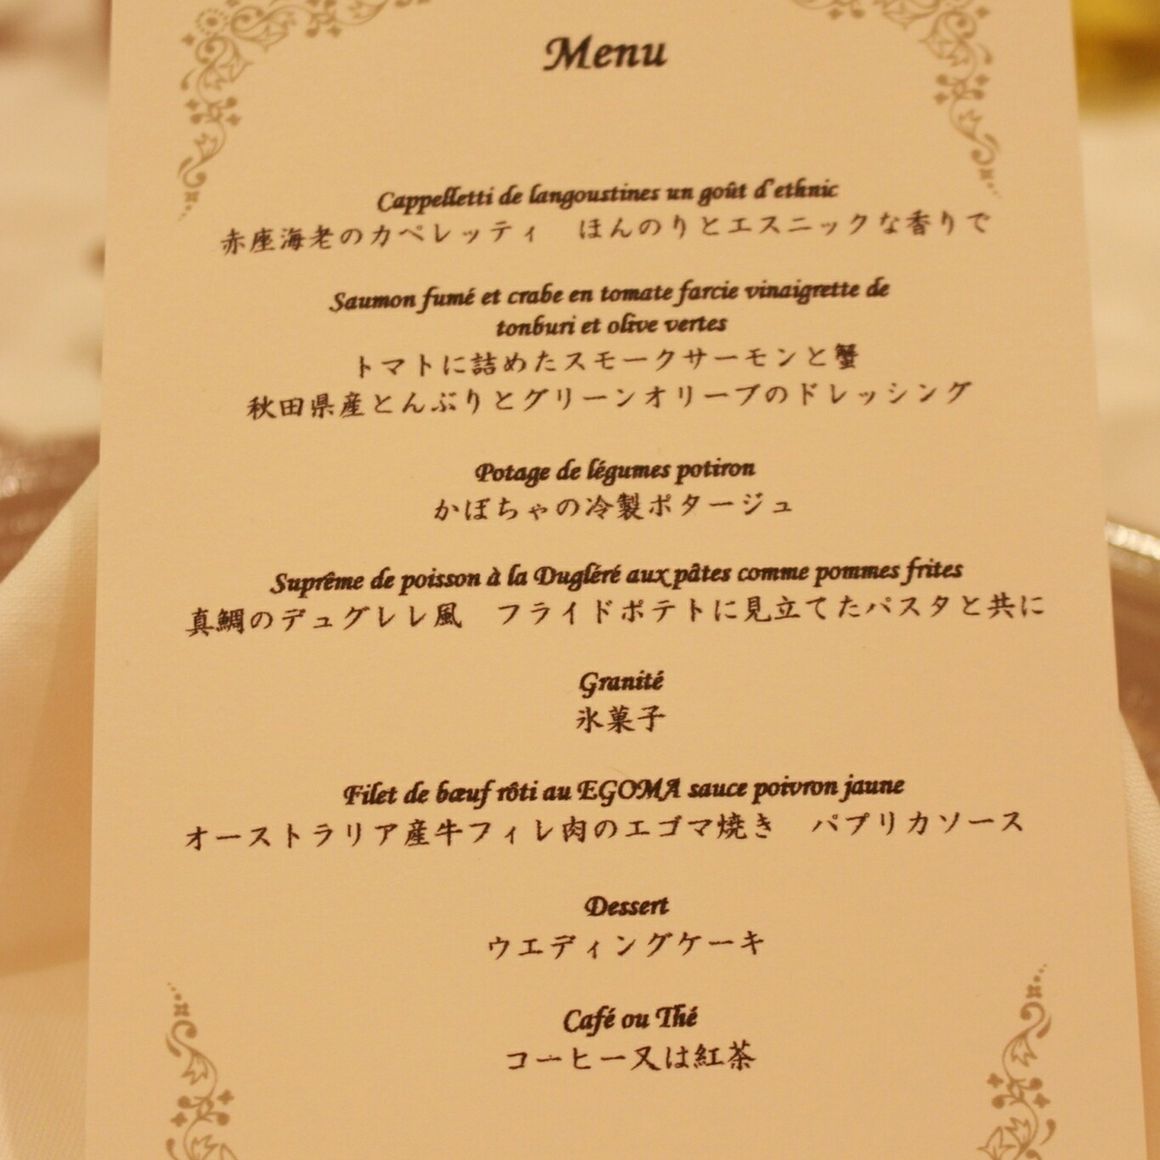 Menu
Cappelletti de langoustines un goût d'ethnic
赤座海老のカペレッティ　ほんのりとエスニックな香りで
Saumon fumé et crabe en tomate farcie vinaigrette de
tonburi et olive vertes
トマトに詰めたスモークサーモンと蟹
秋田県産とんぶりとグリーンオリーブのドレッシング
Potage de légumes potiron
かぼちゃの冷製ポタージュ
Suprême de poisson à la Dugléré aux pâtes comme pommes frites
真鯛のデュグレレ風　フライドポテトに見立てたパスタと共に
Granité
氷菓子
Filet de bœuf rôti au EGOMA sauce poivron jaune
オーストラリア産牛フィレ肉のエゴマ焼き　パプリカソース
Dessert
ウエディングケーキ
Café ou Thé
コーヒー又は紅茶